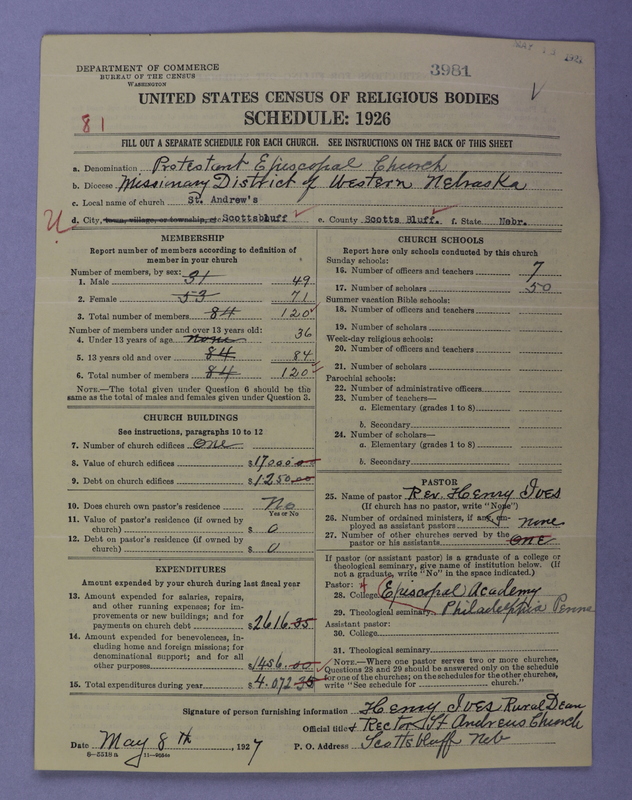 DEPARTMENT OF COMMERCE
BUREAU OF THE CENSUS
WASHINGTON
3981
UNITED STATES CENSUS OF RELIGIOUS BODIES
SCHEDULE: 1926
81
FILL OUT A SEPARATE SCHEDULE FOR EACH CHURCH. SEE INSTRUCTIONS ON THE BACK OF THIS SHEET
a. Denomination Protestant Episcopal Church
b. Diocese Missionary District of Western Nebraska
c. Local name of church St. Andrew's
d. City, town, village, or township, etc Scottsbluff e. County Scotts Bluff. f. State Nebr.
MEMBERSHIP
Report number of members according to definition of member in your church
Number of members, by sex:
1. Male 31 49
2. Female 53 71
3. Total number of members 84 120
Number of members under and over 13 years old:
4. Under 13 years of age none 36
5. 13 years old and over 84 84
6. Total number of members 84 120
NOTE.—The total given under Question 6 should be the same as the total of males and females given under Question 3.
CHURCH BUILDINGS
See instructions, paragraphs 10 to 12
7. Number of church edifices One
8. Value of church edifices $17000.00
9. Debt on church edifices $1250.00
10. Does church own pastor's residence No
Yes or No
11. Value of pastor's residence (if owned by church) $ 0
12. Debt on pastor's residence (if owned by church) $ 0
EXPENDITURES
Amount expended by your church during last fiscal year
13. Amount expended for salaries, repairs, and other running expenses; for improvements or new buildings; and for payments on church debt $2616.35
14. Amount expended for benevolences, including home and foreign missions; for denominational support; and for all other purposes $1456.00
15. Total expenditures during year $4.072.35
CHURCH SCHOOLS
Report here only schools conducted by this church
Sunday schools:
16. Number of officers and teachers 7
17. Number of scholars 50
Summer vacation Bible schools:
18. Number of officers and teachers
19. Number of scholars
Week-day religious schools:
20. Number of officers and teachers
21. Number of scholars
Parochial schools:
22. Number of administrative officers
23. Number of teachers—
a. Elementary (grades 1 to 8)
b. Secondary
24. Number of scholars—
a. Elementary (grades 1 to 8)
b. Secondary
PASTOR
25. Name of pastor Rev. Henry Ives
(If church has no pastor, write "None")
26. Number of ordained ministers, if any, employed as assistant pastors none
27. Number of other churches served by the pastor or his assistants one
If pastor (or assistant pastor) is a graduate of a college or theological seminary, give name of institution below. (If not a graduate, write "No" in the space indicated.)
Pastor:
28. College Episcopal Academy
29. Theological seminary Philadelphia Penna
Assistant pastor:
30. College
31. Theological seminary
NOTE.—Where one pastor serves two or more churches, Questions 28 and 29 should be answered only on the schedule for one of the churches; on the schedules for the other churches, write "See schedule for church."
Signature of person furnishing information Henry Ives Rural Dean
Official title & Rector St Andrews Church
Date May 8th, 1927 P. O. Address Scottsbluff Neb
8—5518 a